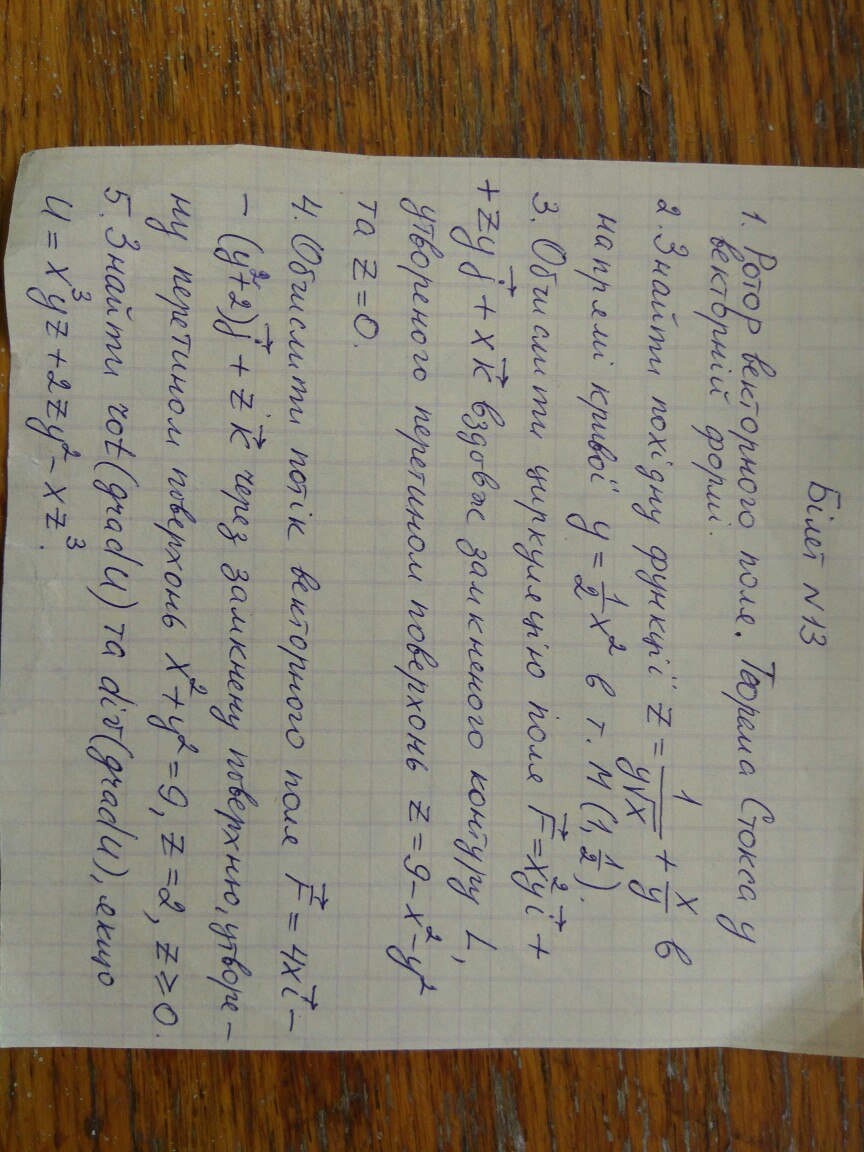 Білет N13
1. Ротор векторного поля. Теорема Стокса у
векторній формі.
2. Знайти похідну функції z = 1/(y√x) + x/y в
напрямі кривої y = 1/2 x² в т. M (1, 1/2).
3. Обчислити циркуляцію поля F⃗ = x²y i⃗ +
+ zy j⃗ + x k⃗ вздовж замкненого контуру L,
утвореного перетином поверхонь z = 9 - x² - y²
та z = 0.
4. Обчислити потік векторного поля F⃗ = 4x i⃗ -
- (y²+2) j⃗ + z k⃗ через замкнену поверхню, утворе-
ну перетином поверхонь x² + y² = 9, z = 2, z ≥ 0.
5. Знайти rot(grad U) та div(grad U), якщо
U = x³yz + 2zy² - xz³.